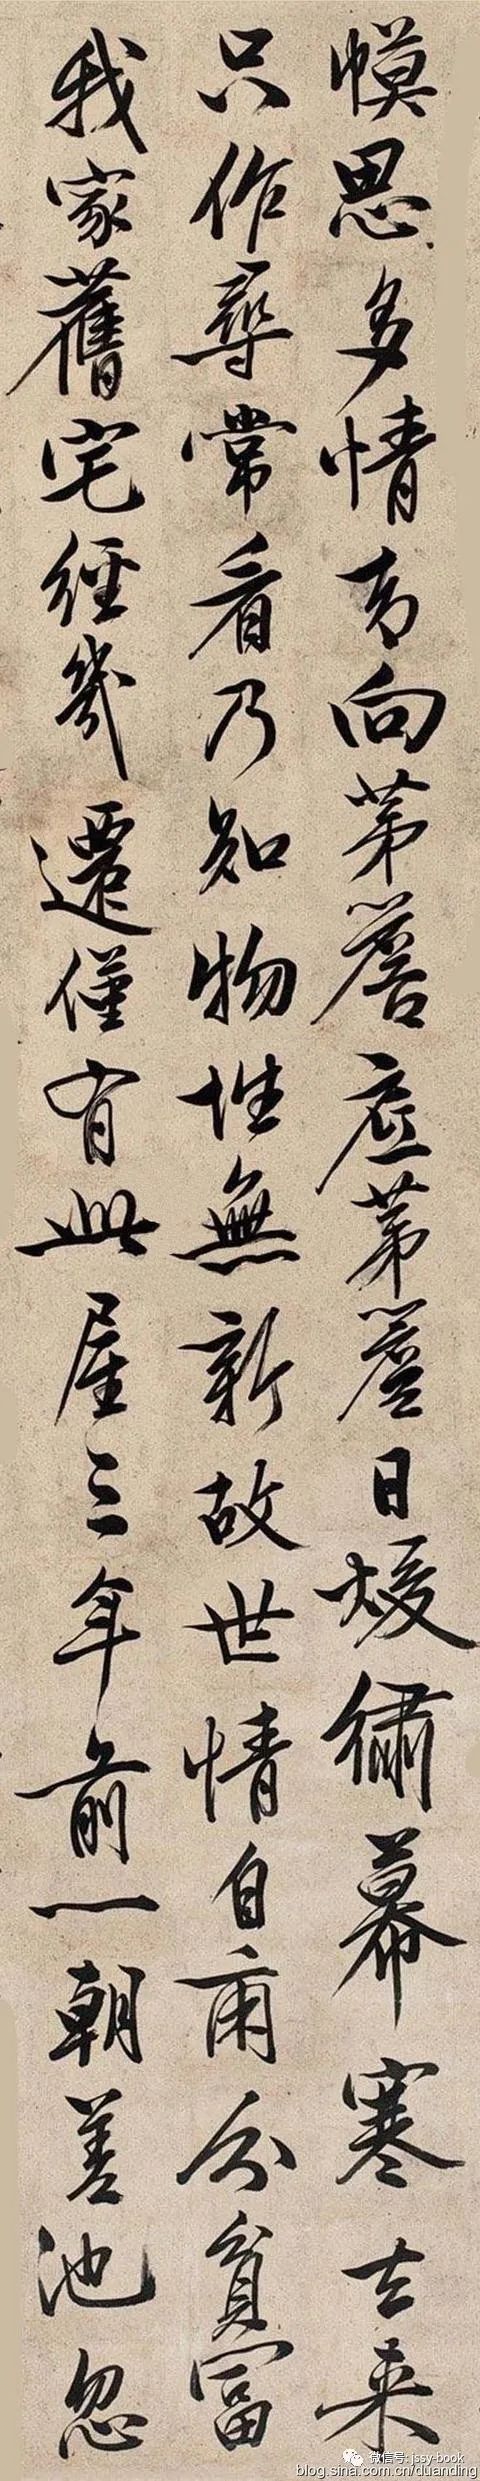 幙思多情古向茅簷宿茅簷日煖繡幕寒去来
只作尋常看乃知物性無新故世情自爾分貧富
我家舊宅經幾遷僅有此屋三年前一朝差池忽
微信号: jssy-book
blog.sina.com.cn/duanding